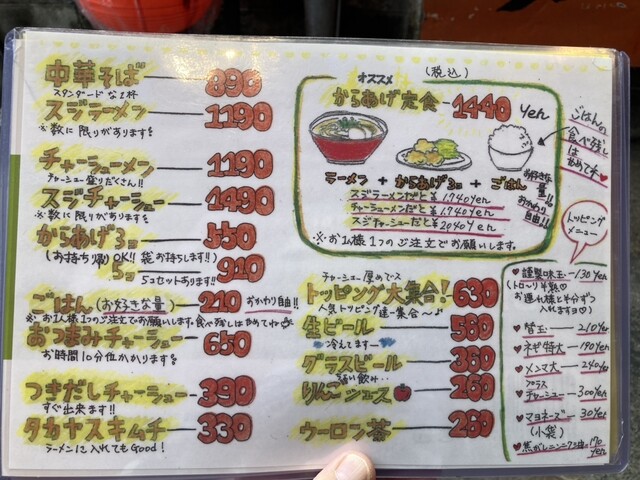 中華そば 890
スタンダードな1杯
スジラーメン 1190
※数に限りがあります!
チャーシューメン 1190
チャーシュー盛りだくさん!!
スジチャーシュー 1490
※数に限りがあります
からあげ3コ 550
(お持ち帰りOK!! 袋お持ちします!!)
5コ 910
5コセットあります!!
ごはん(お好きな量) 210 おかわり自由!!
※お1人様1つのご注文でお願いします。食べ残しはなめてね
おつまみチャーシュー 650
お時間10分位かかります
つきだしチャーシュー 390
すぐ出来ます!!
タカヤスキムチ 330
ラーメンに入れてもGood!
オススメ (税込)
からあげ定食 1440 yen
ラーメン + からあげ3コ + ごはん
お好きな量!!
おかわり自由!!
スジラーメンだと¥1,740yen
チャーシューメンだと¥1,740yen
スジチャーシューだと¥2040yen
※お1人様1つのご注文でお願いします。
ごはんの食べ残しはなめてネ♥
チャーシュー厚めでス
トッピング大集合! 630
人気トッピング達一集合〜♪
生ビール 560
冷えてますー
グラスビール 360
ちょい飲み...
りんごジュース 260
ウーロン茶 260
トッピングメニュー
♥謹製味玉…130yen
(トローリ半熟)
お連れ様と半分ずつ
入れますヨ♥
♥替玉 210yen
♥ネギ特大 190yen
♥メンマ大 240yen
♥プラスチャーシュー 300yen
♥マヨネーズ 30yen
(小袋)
♥焦がしニンニク油 170yen